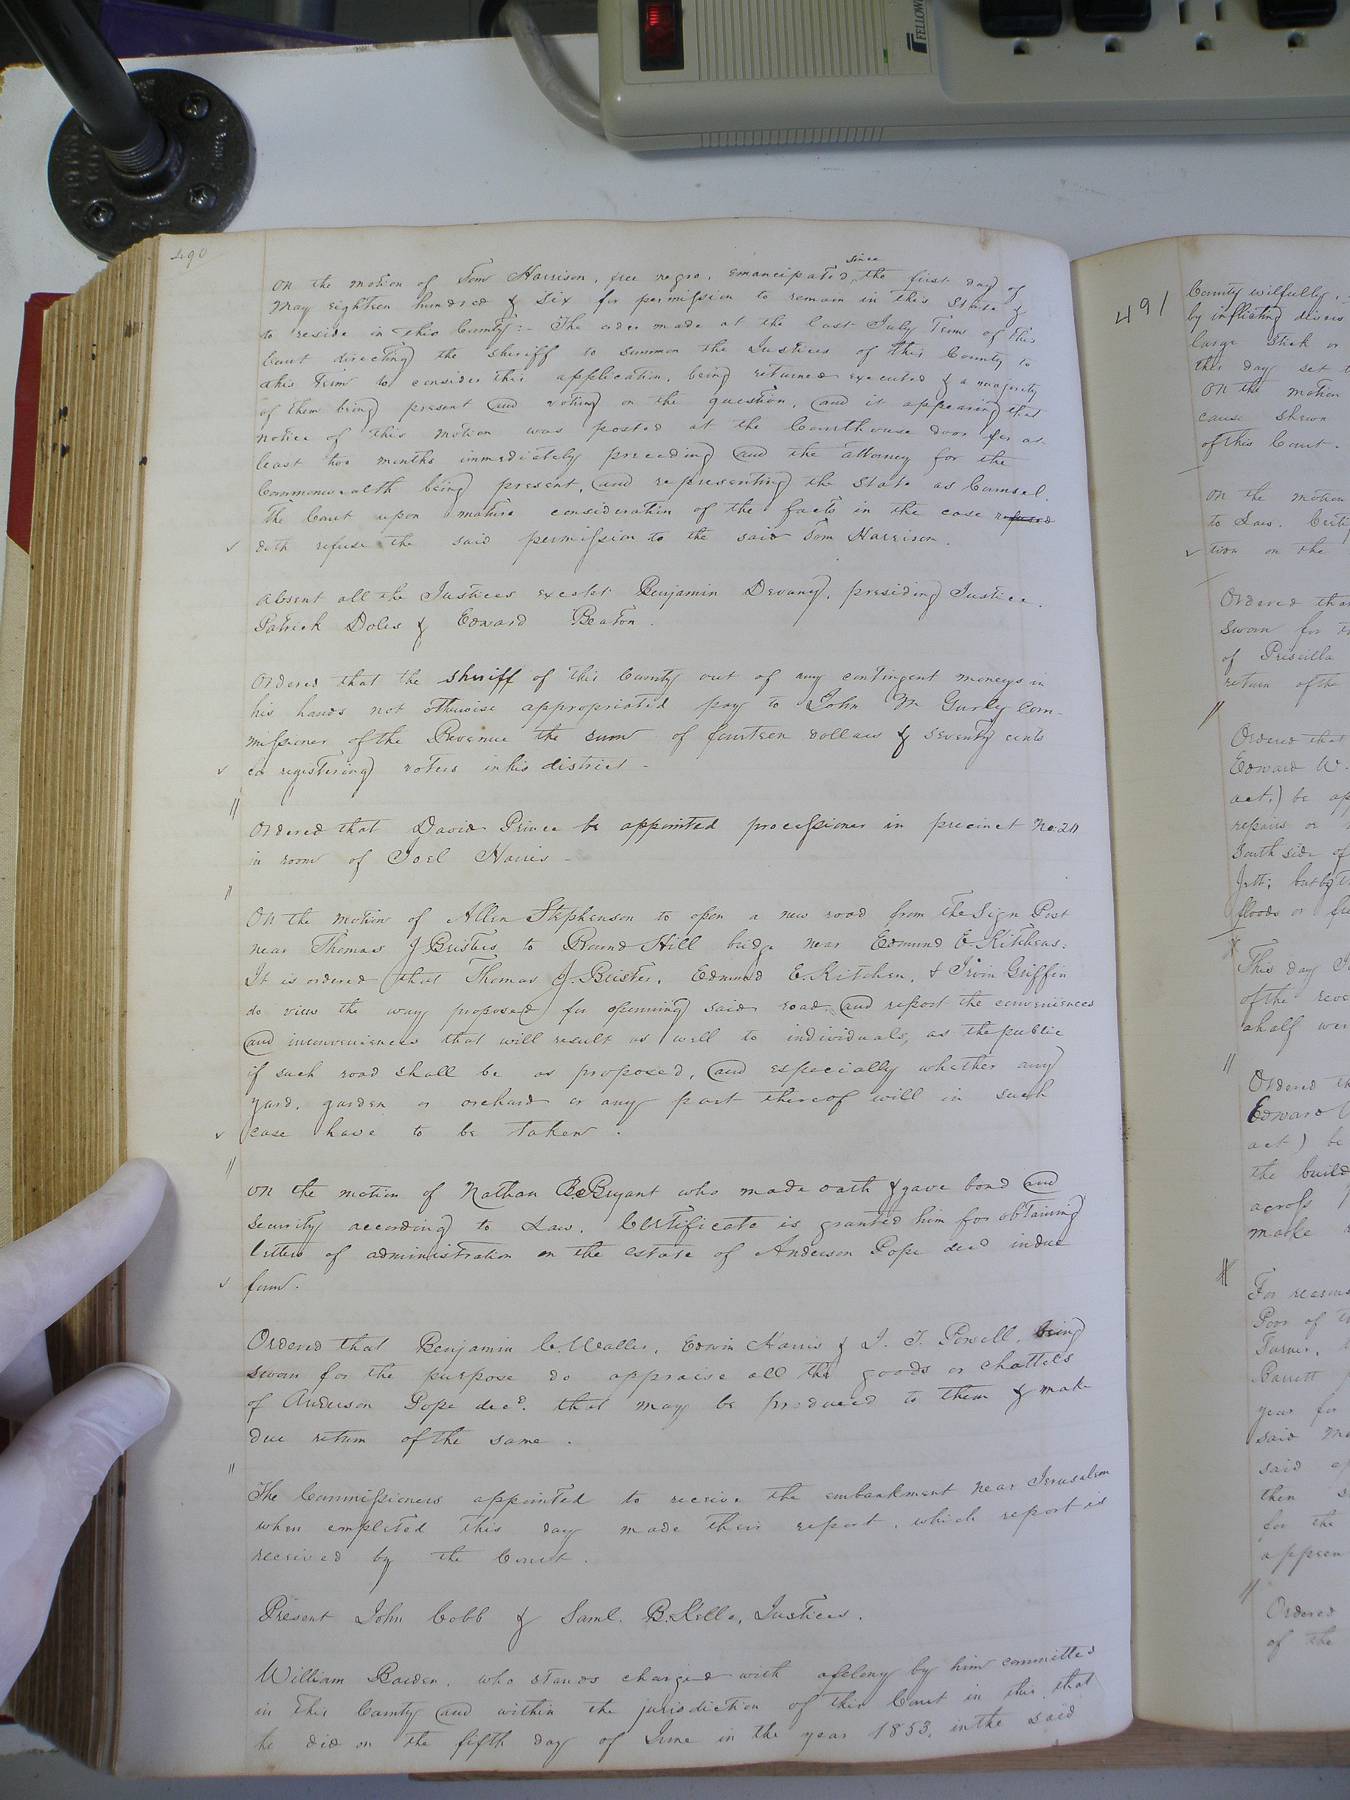 FELLOWE
490
On the motion of Tom Harrison, free negro, emancipated since the first day of
May eighteen hundred & Six for permission to remain in this State &
to reside in this County:- The order made at the last July Term of this
Court directing the sheriff to summon the Justices of this County to
this Term to consider this application, being returned executed & a majority
of them being present and voting on the question, and it appearing that
notice of this motion was posted at the Courthouse door for at
least two months immediately preceding and the attorney for the
Commonwealth being present, and representing the State as Counsel.
The Court upon mature consideration of the facts in the case refused
doth refuse the said permission to the said Tom Harrison.
Absent all the Justices except Benjamin Devany, presiding Justice.
Patrick Doles & Edward Beaton.
Ordered that the sheriff of this County out of any contingent moneys in
his hands not otherwise appropriated pay to John M Gurley Com-
missioner of the Revenue the sum of fourteen dollars & seventy cents
for registering voters in his district -
Ordered that David Prince be appointed processioner in precinct No. 20
in room of Joel Harris -
On the motion of Allen Stephenson to open a new road from the Sign Post
near Thomas J Bristers to Round Hill bridge near Edmund E Kitchens:
It is ordered that Thomas J. Brister, Edmund E. Kitchen, & Irvin Griffin
do view the way proposed for openning said road and report the conveniences
and inconveniences that will result as well to individuals, as the public
if such road shall be as proposed, and especially whether any
yard, garden or orchard or any part thereof will in such
case have to be taken.
On the motion of Nathan B Bryant who made oath & gave bond and
security according to Law. Certificate is granted him for obtaining
letters of administration on the estate of Anderson Pope decd in due
form.
Ordered that Benjamin C Waller, Edwin Harris & J. T. Powell being
sworn for the purpose do appraise all the goods or chattels
of Anderson Pope decd. that may be produced to them & make
due return of the same.
The Commissioners appointed to receive the embankment near Jerusalem
when completed this day made their report, which report is
received by the Court.
Present John Cobb & Saml. B. Kello, Justices.
William Barden, who stands charged with a felony by him committed
in this County and within the jurisdiction of this Court in this, that
he did on the fifth day of June in the year 1853, in the said
491
County wilfully,
by inflicting divers
large stick or
this day set
On the motion
cause shewn
of this Court.
On the motion
to Law. Certi
tion on the
Ordered that
sworn for th
of Priscilla
return of the
Ordered that
Edward W.
act.) be ap
repairs or
South side of
floods or
This day
of the
a half
Ordered th
Edward
act) be
the build
across
make
For reasons
Poor of
Turner,
Barrett
year for
said
said
then
for the
appren
Ordered
of the